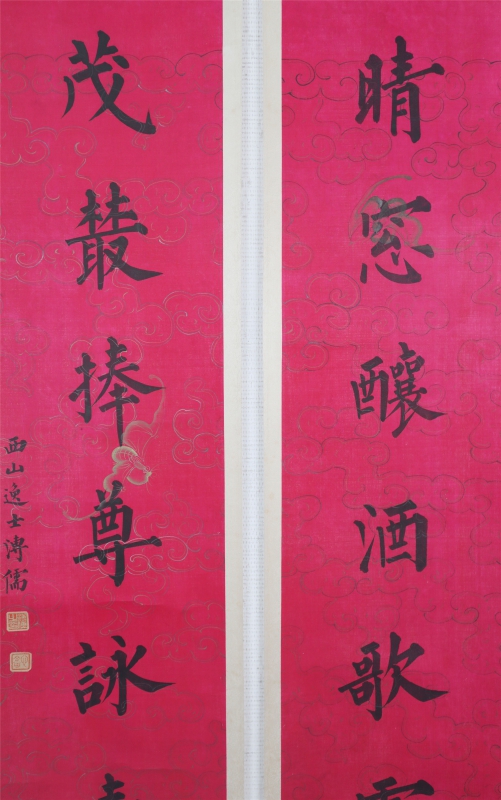 晴窓釀酒歌
茂叢捧尊詠
西山逸士溥儒